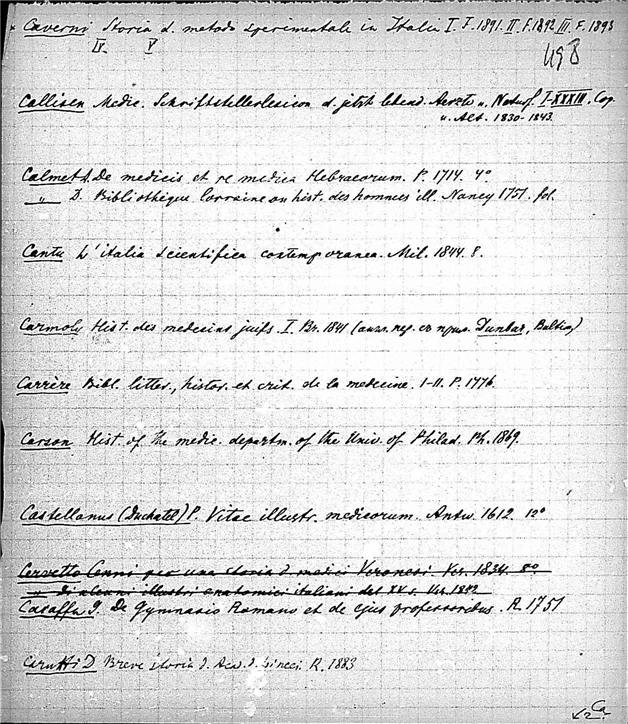 × Caverni Storia d. metodo sperimentale in Italia I. F. 1891. II. F. 1892 III. F. 1893
IV. V
498
Callisen Medic. Schriftstellerlexicon d. jetzt lebend. Aerzte u. Naturf. I-XXXIII. Cop.
u. Alt. 1830-1843.
Calmet A. De medicis et re medica Hebraeorum. P. 1714. 4°
„ D. Bibliothèque lorraine ou hist. des hommes ill. Nancy 1751. fol.
Cantu L'italia scientifica contemporanea. Mil. 1844. 8.
Carmoly Hist. des medecins juifs. I. Br. 1841 (Dunbar,
Carrère Bibl. litter., histor. et crit. de la medecine. I-II. P. 1776.
Carson Hist. of the medic. departm. of the Univ. of Philad. Ph. 1869.
Castellanus (Duchatel) P. Vitae illustr. medicorum. Antw. 1612. 12°
Cervetto Cenni per una storia d. medici Veronesi. Ver. 1834. 8°
„ Di alcuni illustri anatomici italiani del XV s. Ver. 1842
Caraffa J. De Gymnasio Romano et de ejus professoribus. R. 1751
Carutti D Breve storia d. Acc. d. Lincei. R. 1883
Ca